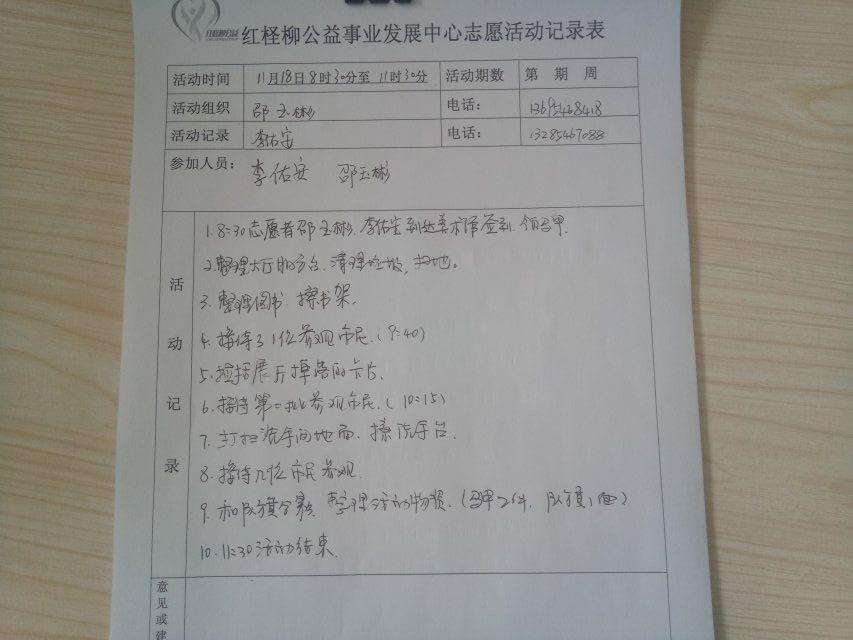 红柽柳公益事业发展中心志愿活动记录表
活动时间 11月18日8时30分至11时30分 活动期数 第 期 周
活动组织 邵玉彬 电话: 13695468418
活动记录 李佑安 电话: 13285467088
参加人员: 李佑安 邵玉彬
活动记录
1. 8:30志愿者邵玉彬、李佑安到达美术馆签到、领马甲.
2. 整理大厅服务台、清理垃圾、扫地。
3. 整理图书、擦书架.
4. 接待了1位参观市民.(9:40)
5. 展厅掉落的卡片.
6. 接待第一批参观市民.(10:15)
7. 打扫洗手间地面、擦洗手台.
8. 接待几位市民参观.
9. 和队旗合影、整理活动物资.(马甲2件、队旗1面)
10. 11:30活动结束.
意见或建